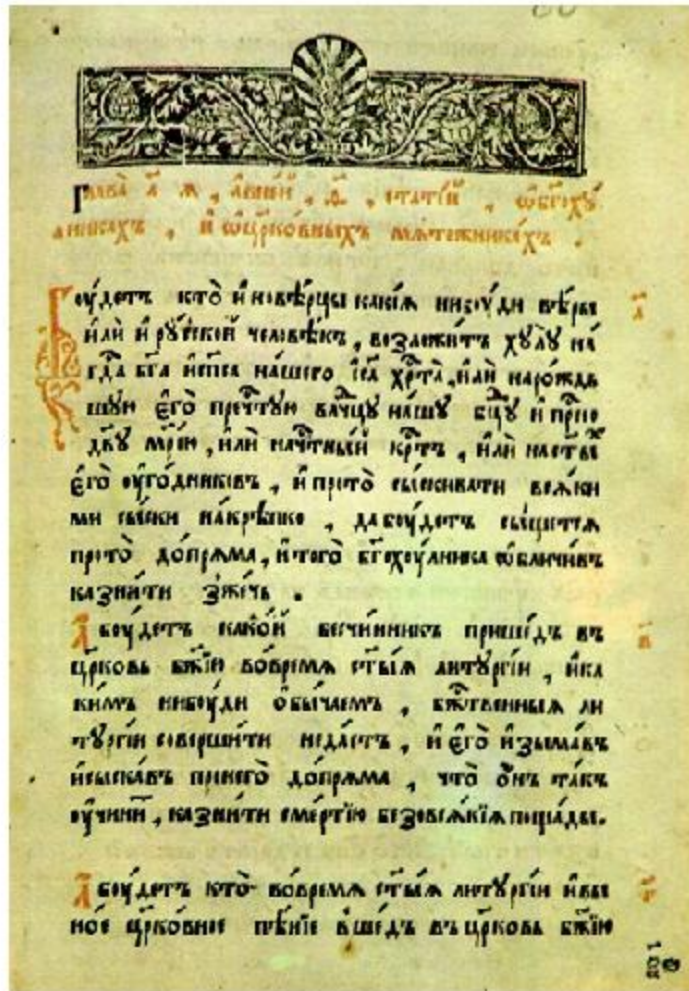 Глава̀ а҃ ѧ , авне́й , ѳ҃ , стате́й , ѡбг҃охꙋ́
лникахъ , и҆ ѡцр҃ко́вныхъ мѧте́жникахъ .
Боу́детъ кто̀ и҆новѣ́рцы какїѧ нибоу́ди вѣ́ры
и҆лѝ и҆ рꙋ́ской человѣ́къ , возложи́тъ хꙋлꙋ̀ на́
гдⷭ҇а бг҃а и҆спⷭ҇са на́шего і҆с҃а хрⷭ҇та̀ , и҆лѝ наро́ждь
шꙋю є҆го̀ пречⷭ҇тꙋю влⷣчцꙋ на́шꙋ бцⷣꙋ и҆ прⷭ҇но
дв҃ꙋ мр҃їю , и҆лѝ начⷭ҇тны́й крⷭ҇тъ , и҆лѝ наст҃ы́хъ
є҆го̀ оу҆го́дниковъ , и҆ прото̀ сы́скивати всѧ́ки
ми сы́ски на́крѣпко , да боу́детъ сы́щетсѧ
прото̀ до́прѧма , и҆ того̀ бг҃охоу́лника ѡ҆бличи́въ
казни́ти зже́чь .
А҆ боу́детъ како́й безчи́нникъ прише́дъ въ
цр҃ковь бж҃їю во́время ст҃ы́ѧ литꙋргі́и , и҆ ка
ки́мъ нибоу́ди ѻ҆бы́чаемъ , бжⷭ҇твенныѧ ли
тꙋргі́и соверши́ти неда́стъ , и҆ є҆го̀ и҆зыма́въ
и҆сыска́въ пронего̀ до́прѧма , что̀ ѻ҆́нъ та́къ
оу҆чини́тъ , казни́ти сме́ртїю безовсѧ́кїѧ поща́ды .
А҆ боу́детъ кто̀ во́времѧ ст҃ы́ѧ литꙋргі́и и҆ вы
но́е цр҃ко́вное пѣ́нїе вше́дъ въ цр҃ковь бж҃їю